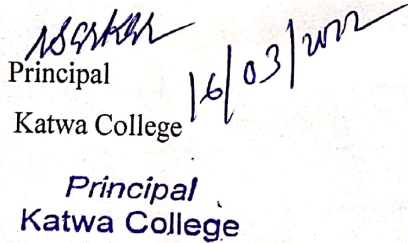 Principal
16/03/2022
Katwa College
Principal
Katwa College